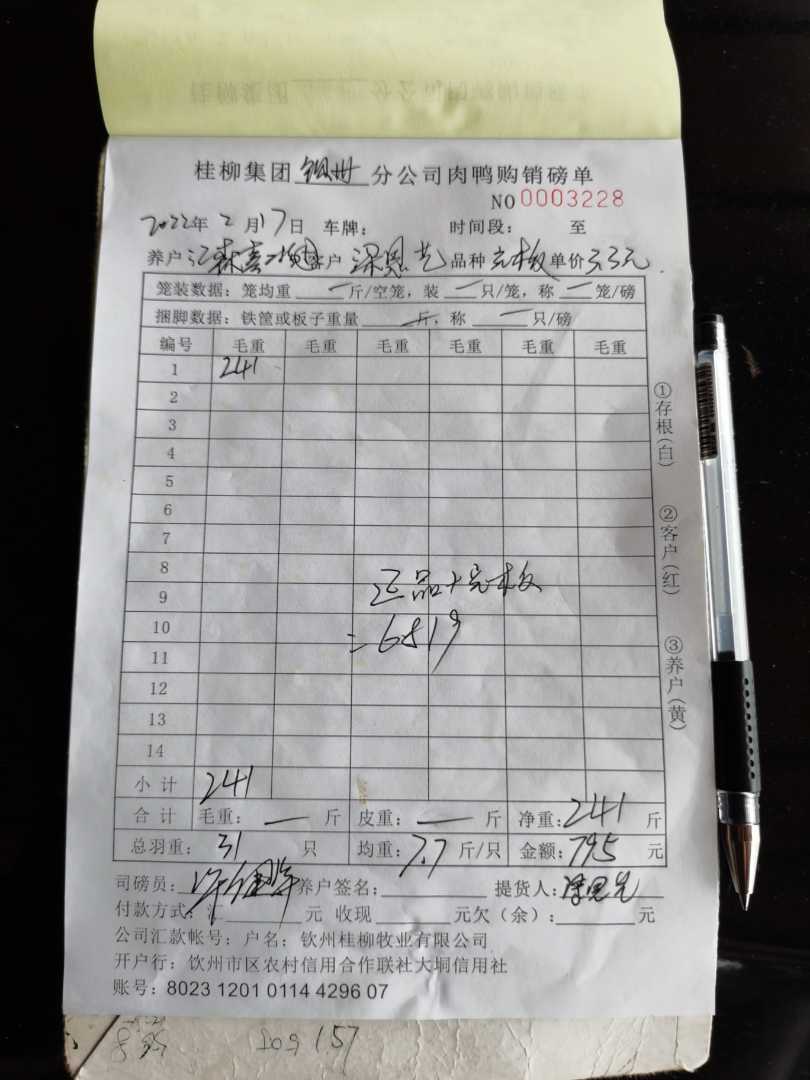 桂柳集团 钦州 分公司肉鸭购销磅单
NO 0003228
2022年 2 月17日 车牌: 时间段: 至
养户 江森喜 客户 梁恩艺 品种 克板 单价 3.3元
笼装数据: 笼均重 — 斤/空笼, 装 — 只/笼, 称 — 笼/磅
捆脚数据: 铁筐或板子重量 — 斤, 称 — 只/磅
编号 毛重 毛重 毛重 毛重 毛重 毛重
1 241
2
3
4
5
6
7
8
9
10
11
12
13
14
正品+克板
=6819
小计 241
合计 毛重: — 斤 皮重: — 斤 净重: 241 斤
总羽重: 31 只 均重: 7.7 斤/只 金额: 795 元
司磅员: 养户签名: 提货人: 梁恩艺
付款方式: 汇 元 收现 元欠(余): 元
公司汇款帐号: 户名: 钦州桂柳牧业有限公司
开户行: 钦州市区农村信用合作联社大垌信用社
账号: 8023 1201 0114 4296 07
①存根(白)
②客户(红)
③养户(黄)